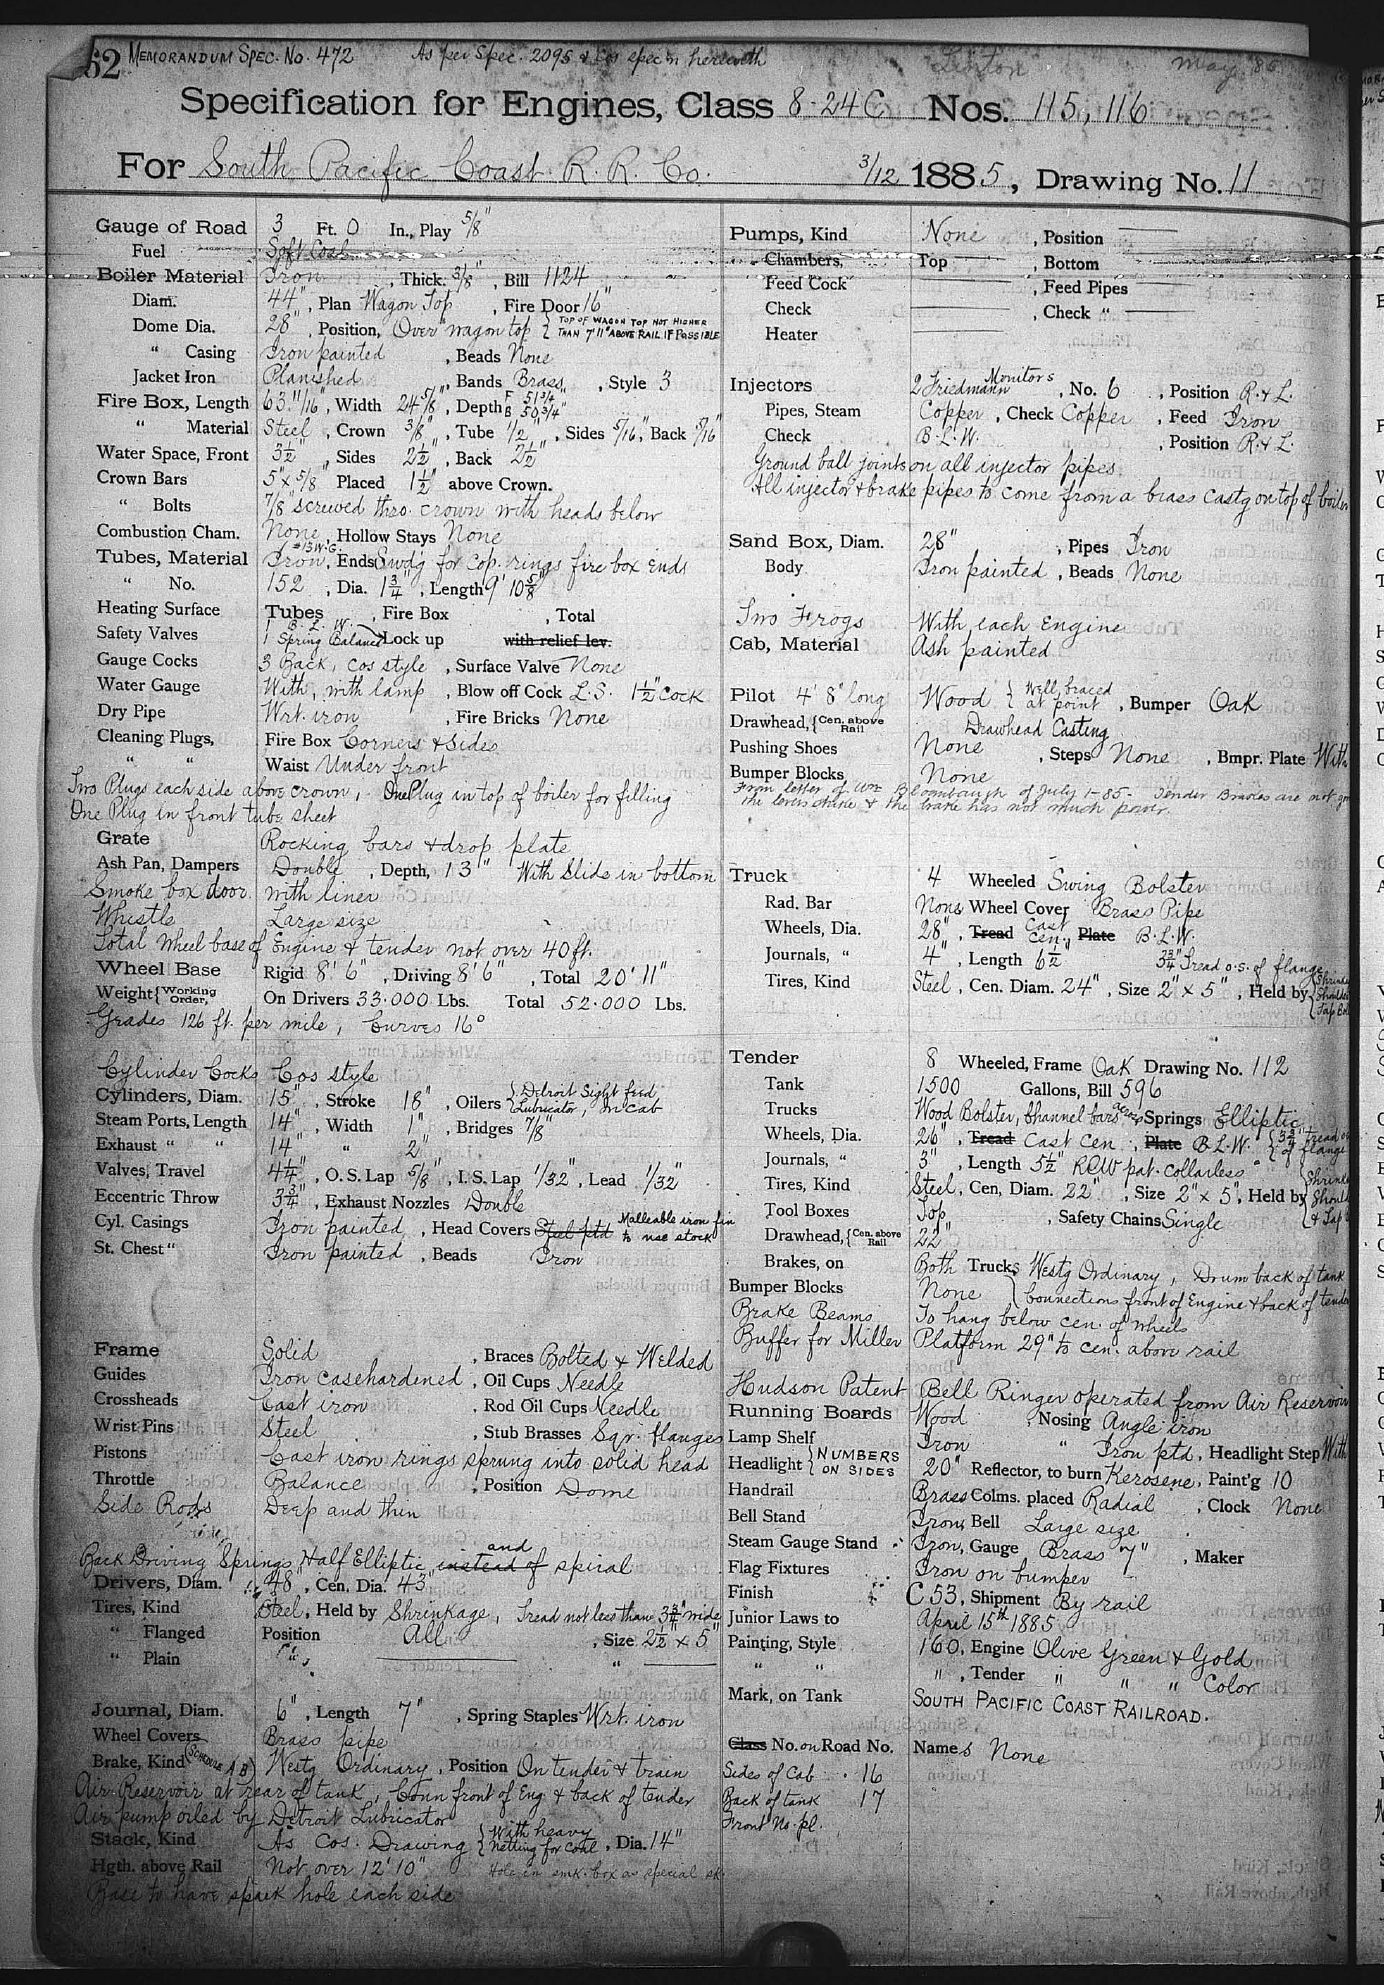 62 MEMORANDUM SPEC. NO. 472 As per Spec. 2095 & Cos specn herewith May '85
Specification for Engines, Class 8-24C Nos. 115, 116
For South Pacific Coast R. R. Co. 3/12 1885, Drawing No. 11
Gauge of Road 3 Ft. 0 In., Play 5/8"
Fuel Soft Coal
Boiler Material Iron, Thick. 3/8", Bill 1124
Diam. 44", Plan Wagon Top, Fire Door 16"
Dome Dia. 28", Position, Over wagon top { TOP OF WAGON TOP NOT HIGHER THAN 7' 11" ABOVE RAIL IF POSSIBLE
" Casing Iron painted, Beads None
Jacket Iron Planished, Bands Brass, Style 3
Fire Box, Length 63 11/16", Width 24 5/8", Depth F 51 3/4" B 50 3/4"
" Material Steel, Crown 3/8", Tube 1/2", Sides 5/16", Back 5/16"
Water Space, Front 3 1/2", Sides 2 1/2", Back 2 1/2"
Crown Bars 5" x 5/8" Placed 1 1/2" above Crown.
" Bolts 7/8" screwed thro. crown with heads below
Combustion Cham. None, Hollow Stays None
Tubes, Material Iron #13 W.G., Ends Swdg for Cop. rings fire box ends
" No. 152, Dia. 1 3/4", Length 9' 10 5/8"
Heating Surface Tubes, Fire Box, Total
Safety Valves 1 B. L. W. 1 Spring Balance Lock up with relief lev.
Gauge Cocks 3 Back, Cos style, Surface Valve None
Water Gauge With, with lamp, Blow off Cock L.S. 1 1/2" Cock
Dry Pipe Wrt. iron, Fire Bricks None
Cleaning Plugs, Fire Box Corners & Sides
" " Waist Under front
Two Plugs each side above crown, One Plug in top of boiler for filling
One Plug in front tube sheet
Grate Rocking bars & drop plate
Ash Pan, Dampers Double, Depth, 13" With Slide in bottom
Smoke box door with liner
Whistle Large size
Total Wheel base of Engine & tender not over 40 ft.
Wheel Base Rigid 8' 6", Driving 8' 6", Total 20' 11"
Weight { Working Order, On Drivers 33.000 Lbs. Total 52.000 Lbs.
Grades 126 ft. per mile, Curves 16°
Cylinder Cocks Cos style
Cylinders, Diam. 15", Stroke 18", Oilers { Detroit Sight feed Lubricator, in Cab
Steam Ports, Length 14", Width 1", Bridges 7/8"
Exhaust " " 14" " 2"
Valves, Travel 4 1/4", O. S. Lap 5/8", I. S. Lap 1/32", Lead 1/32"
Eccentric Throw 3 3/4", Exhaust Nozzles Double
Cyl. Casings Iron painted, Head Covers Steel ptd Malleable iron fin to use stock
St. Chest " Iron painted, Beads Iron
Frame Solid, Braces Bolted & Welded
Guides Iron casehardened, Oil Cups Needle
Crossheads Cast iron, Rod Oil Cups Needle
Wrist Pins Steel, Stub Brasses Sqr. flanges
Pistons Cast iron rings sprung into solid head
Throttle Balance, Position Dome
Side Rods Deep and thin
Back Driving Springs Half Elliptic instead of and spiral
Drivers, Diam. 48", Cen. Dia. 43"
Tires, Kind Steel, Held by Shrinkage, Tread not less than 3 3/4" wide
" Flanged Position All, Size 2 1/2" x 5"
" Plain " "
Journal, Diam. 6", Length 7", Spring Staples Wrt. iron
Wheel Covers Brass pipe
Brake, Kind (SCHEDULE A B) Westg Ordinary, Position On tender & train
Air Reservoir at rear of tank, Conn front of Eng & back of tender
Air pump oiled by Detroit Lubricator
Stack, Kind As Cos. Drawing { With heavy netting for coal, Dia. 14"
Hgth. above Rail Not over 12' 10" Hole in smk. box as special sk.
Base to have spark hole each side
Pumps, Kind None, Position
Chambers, Top, Bottom
Feed Cock, Feed Pipes
Check, Check "
Heater
Injectors 2 Friedmann Monitors, No. 6, Position R. & L.
Pipes, Steam Copper, Check Copper, Feed Iron
Check B. L. W., Position R. & L.
Ground ball joints on all injector pipes
All injector & brake pipes to come from a brass castg on top of boiler
Sand Box, Diam. 28", Pipes Iron
Body Iron painted, Beads None
Two Frogs With each Engine
Cab, Material Ash painted
Pilot 4' 8" long Wood { Well braced at point, Bumper Oak
Drawhead, { Cen. above Rail Drawhead Casting
Pushing Shoes None, Steps None, Bmpr. Plate With
Bumper Blocks None
From letter of Wm Bloombaugh of July 1-85- Tender Brakes are not
the levers strike & the brake has not much power.
Truck 4 Wheeled Swing Bolster
Rad. Bar None Wheel Cover Brass Pipe
Wheels, Dia. 28", Tread Cast Cen., Plate B. L. W.
Journals, " 4", Length 6 1/2" 3 3/4" Tread o.s. of flange
Tires, Kind Steel, Cen. Diam. 24", Size 2" x 5", Held by
Tender 8 Wheeled, Frame Oak Drawing No. 112
Tank 1500 Gallons, Bill 596
Trucks Wood Bolster, Channel bars across Springs Elliptic
Wheels, Dia. 26", Tread Cast Cen, Plate B. L. W. { 3 3/4" tread of flange
Journals, " 3", Length 5 1/2" RCW pat. collarless
Tires, Kind Steel, Cen, Diam. 22", Size 2" x 5", Held by
Tool Boxes Top, Safety Chains Single
Drawhead, { Cen. above Rail 22"
Brakes, on Both Trucks Westg Ordinary, Drum back of tank
Bumper Blocks None { Connections front of Engine & back of tender
Brake Beams To hang below cen. of wheels
Buffer for Miller Platform 29" to cen. above rail
Hudson Patent Bell Ringer operated from Air Reservoir
Running Boards Wood, Nosing Angle iron
Lamp Shelf Iron " Iron ptd, Headlight Step With
Headlight { NUMBERS ON SIDES 20" Reflector, to burn Kerosene, Paint'g 10
Handrail Brass Colms. placed Radial, Clock None
Bell Stand Iron, Bell Large size
Steam Gauge Stand Iron, Gauge Brass 7", Maker
Flag Fixtures Iron on bumper
Finish C 53, Shipment By rail
Junior Laws to April 15th 1885
Painting, Style 160, Engine Olive Green & Gold
" " ", Tender " " " Color
Mark, on Tank SOUTH PACIFIC COAST RAILROAD.
Class No. on Road No. Names None
Sides of Cab 16
Back of tank 17
Front No. pl.